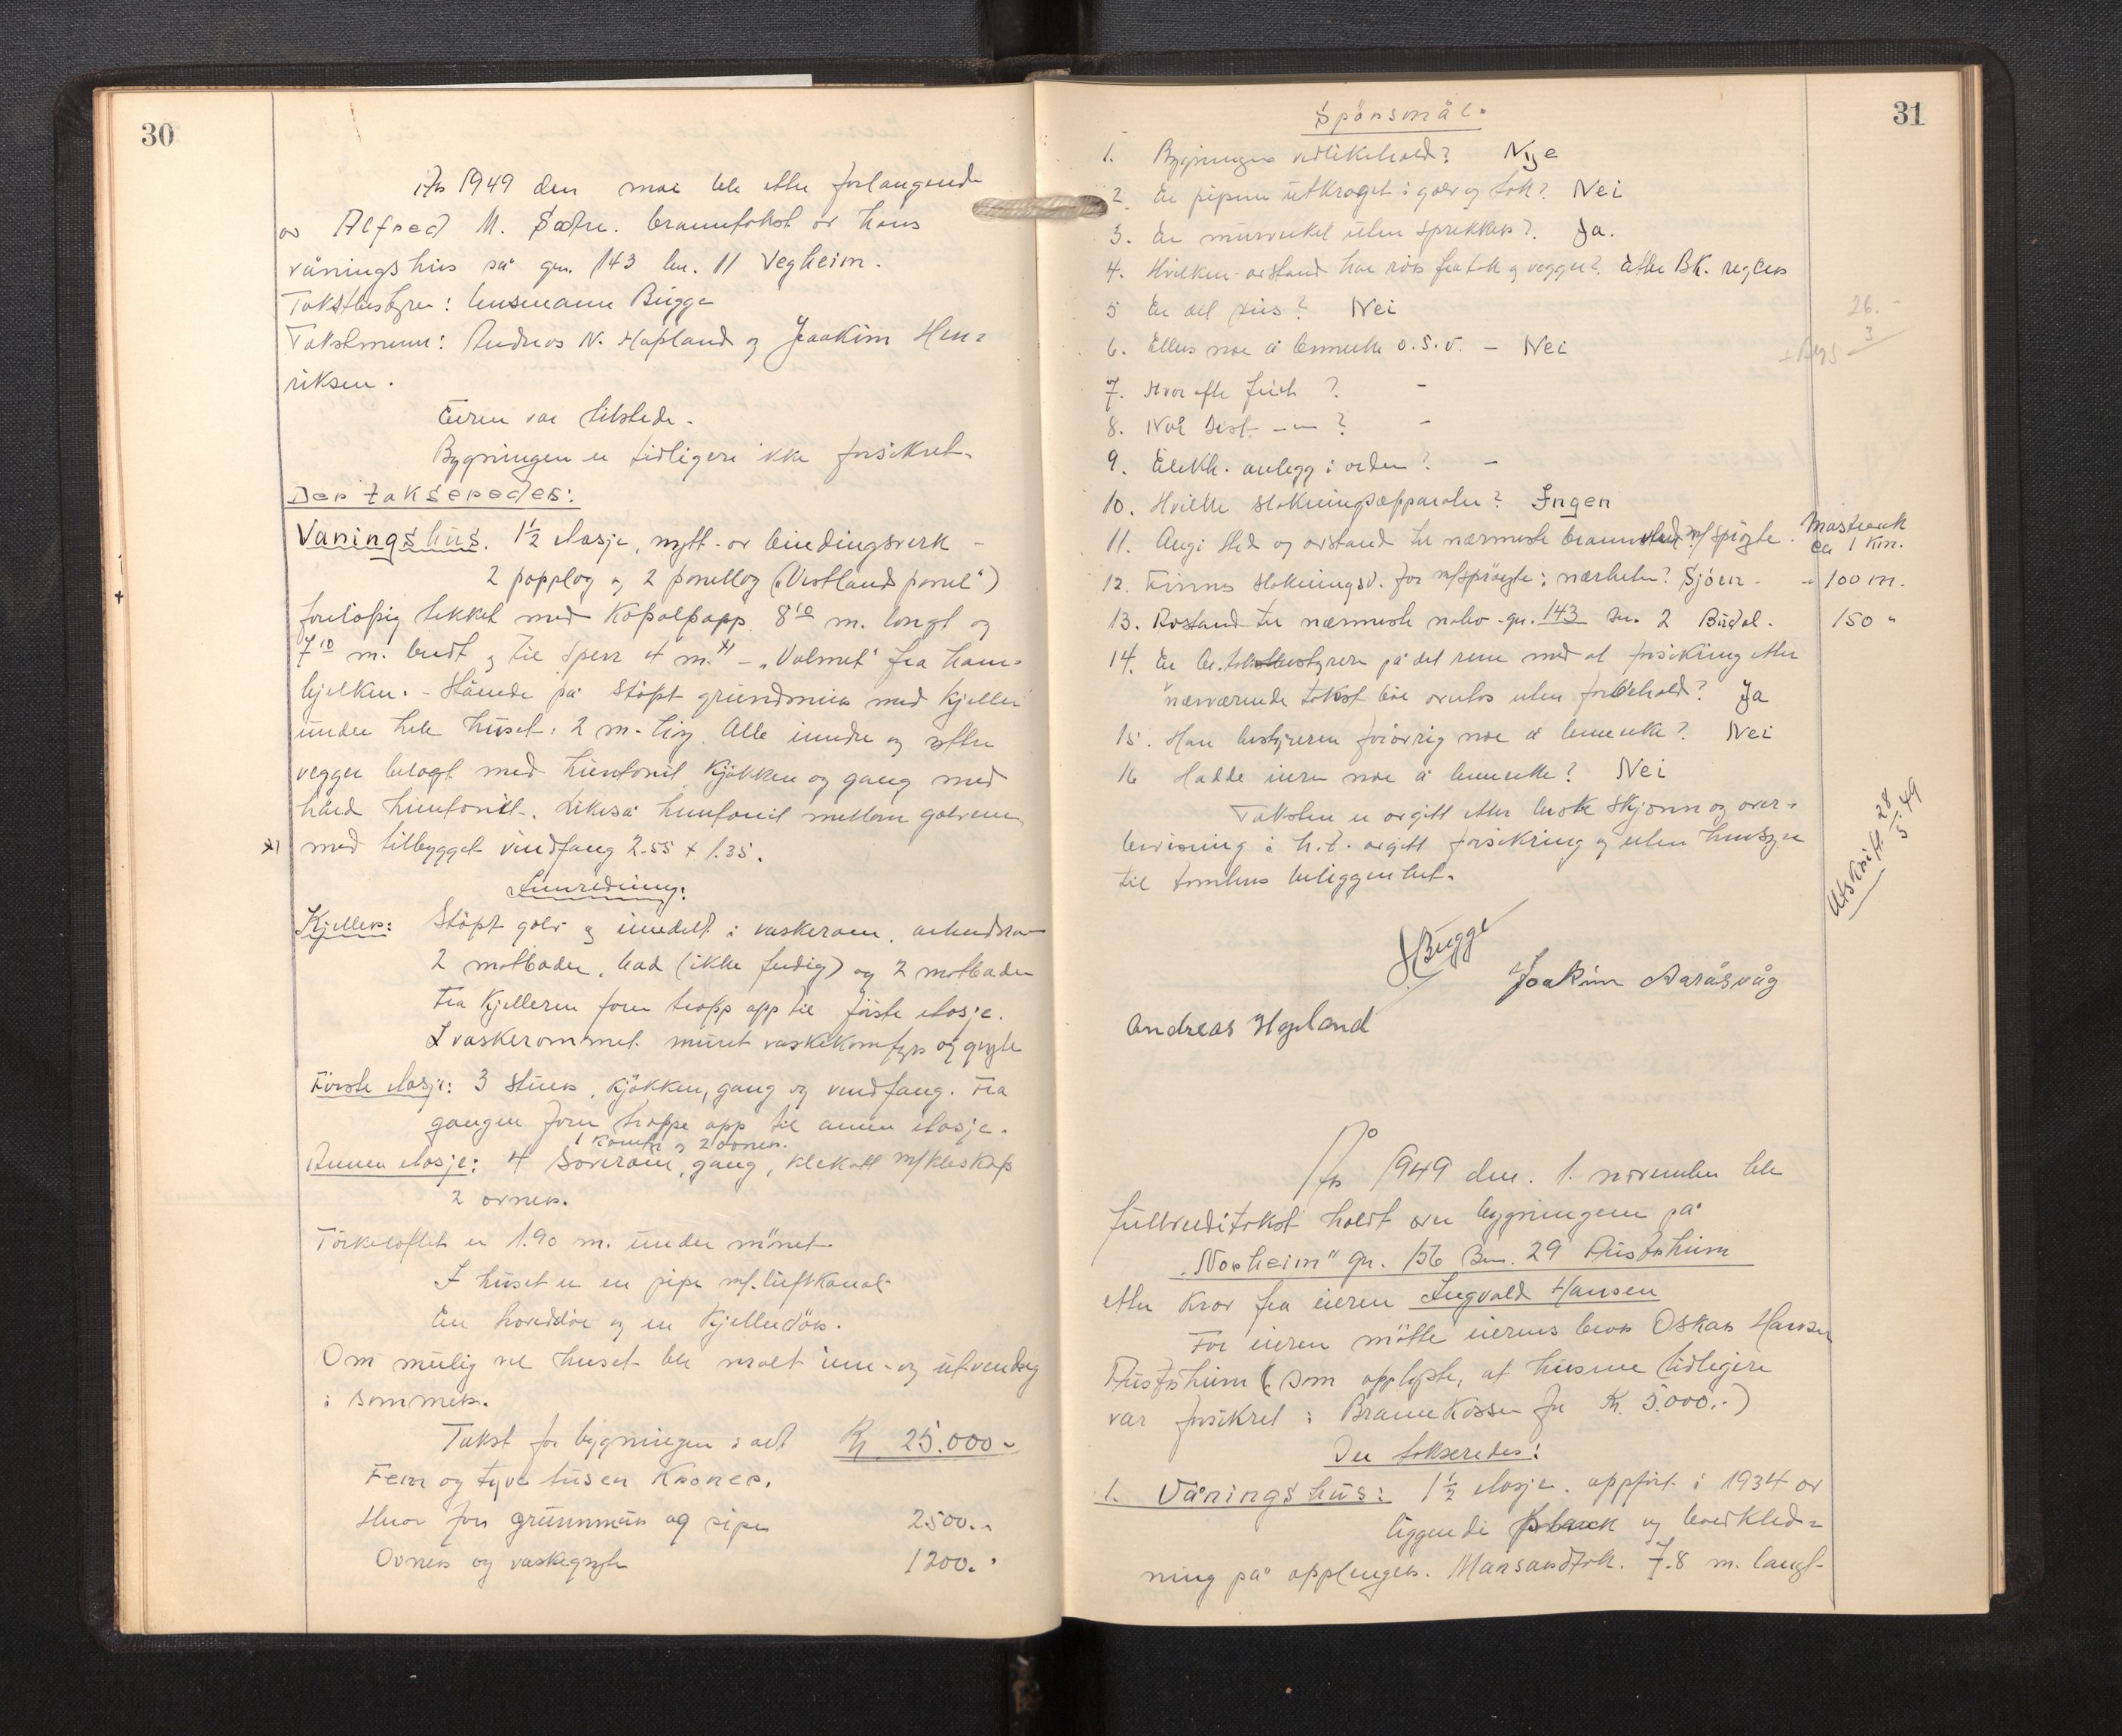 30
År 1949 den mai ble etter forlangende
av Alfred M. Sætre. branntakst av hans
våningshus på gn. 143 bn. 11 Vegheim.
Takstbestyrer: lensmann Bugge
Takstmenn: Andreas N. Høpland og Joakim Hen-
riksen.
Eieren var tilstede.
Bygningen er tidligere ikke forsikret.
Der takseredes:
Vaningshus. 1½ etasje, nytt - av bindingsverk -
2 papplag og 2 panellag ("Vestlandpanel")
foreløpig tekket med Kopalpapp 8¹⁰ m. langt og
7¹⁰ m. bredt og til sperr 4 m. x) - "Valmet" fra ham-
bjelken. - Stående på støpt grundmur med kjeller
under hele huset. 2 m. høy. Alle indre og yttre
vegger belagt med huntonit. Kjøkken og gang med
hård huntonit. Likeså huntonit mellom golvene
x) med tilbygget vindfang 2.55 x 1.35.
Innredning:
Kjeller: Støpt golv og inndelt i vaskerom, arbeidsrom
2 matboder, bad (ikke ferdig) og 2 matboder
Fra kjelleren fører trapp opp til første etasje.
I vaskerommet muret vaskekomfyr og gryte
Første etasje: 3 stuer, kjøkken, gang og vindfang. Fra
gangen fører trappe opp til annen etasje.
1 komfyr og 2 ovner.
Annen etasje: 4 soverom, gang, klekott m/kleskap
2 ovner.
Tørkeloftet er 1.90 m. under mønet
I huset er en pipe m/. luftkanal
En hoveddør og en kjellerdør.
Om mulig vil huset bli malt inn- og utvendig
i sommer.
Takst for bygningen i alt Kr. 25.000.-
Fem og tyve tusen Kroner.
Herav for grunnmur og pipe 2500.-
Ovner og vaskegryte 1200.-
31
Spörsmål.
1. Bygningens vedlikehold? Nye
2. Er pipene utkraget i golv og tak? Nei
3. Er murverket uten sprekker? Ja.
4. Hvilken avstand har rør fra tak og vegger? Etter BK. regler
5 Er det sus? Nei
6. Ellers noe å bemerke o.s.v. - Nei
7. Hvor ofte feiet? -
8. Når sist -"- ? -
9. Elektr. anlegg i orden? -
10. Hvilke slokningsapparater? Ingen
11. Angi sted og avstand til nærmeste brannstasjon m/sprøyte. Mastrevik
ca 1 km.
12. Finnes slokningsv. for m/sprøyte i nærheten? Sjøen - - 100 m.
13. Avstand til nærmeste nabo - gn. 143 bn. 2 Budal. 150 "
14. Er br. takstbestyreren på det rene med at forsikring etter
nærværende takst bør avvises uten forbehold? Ja
15. Har bestyreren forøvrig noe å bemerke? Nei
16 Hadde eieren noe å bemerke? Nei
Taksten er avgitt etter beste skjønn og over-
bevisning i h.t. avgitt forsikring og uten hensyn
til tomtens beliggenhet.
26.-
3
Utskrift 28/5-49
H Bugge
Joakim Aaråsvåg
Andreas Høpland
År 1949 den. 1. november ble
fullverditakst holdt over bygningene på
"Norheim" gn. 156 Bn. 29 Austrheim
etter krav fra eieren Ingvald Hansen
For eieren møtte eierens bror Oskar Hansen
Austrheim (som opplyste, at husene tidligere
var forsikret i Brannkassen for Kr. 5.000.-)
Der takseredes:
1. Våningshus: 1½ etasje. oppført i 1934 av
liggende plank og bordkled-
ning på opplenger. Mansardtak. 7.8 m. langt-